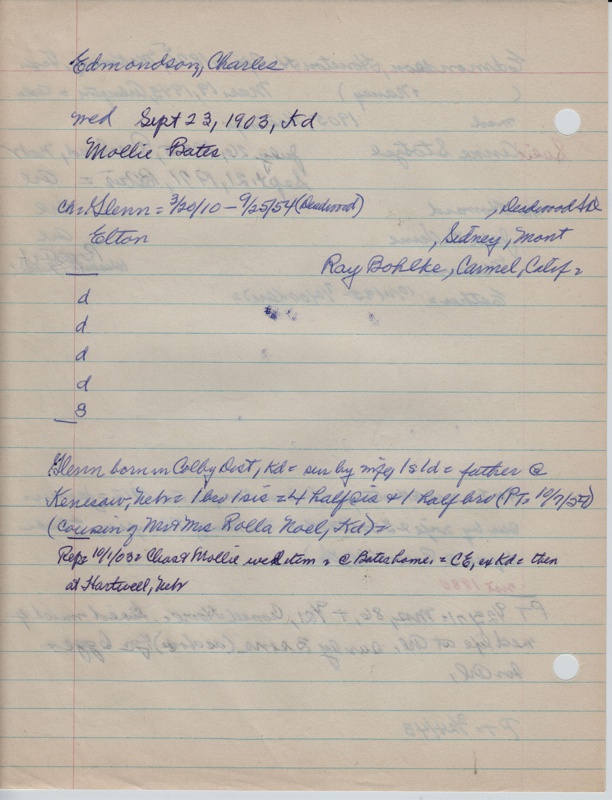 Edmondson, Charles
wed Sept 23, 1903, Kd
Mollie Bates,
ch = Glenn = 3/20/10 - 9/25/54 (Deadwood) , Deadwood SD
Elton , Sidney, Mont
Ray Bohlke, Carmel, Calif =
d
d
d
d
s
Glenn born in Colby Dist, Kd = sur by 1s 1d = father @
Kenesaw, Nebr = 1 bro 1 sis = 4 half sis & 1 half bro (PT = 10/7/54)
(cousin of Mr & Mrs Rolla Noel, Kd) =
Rep = 10/1/03 = Chas & Mollie wed item = @ Bates home, = CE, ex Kd = then
at Hartwell, Nebr